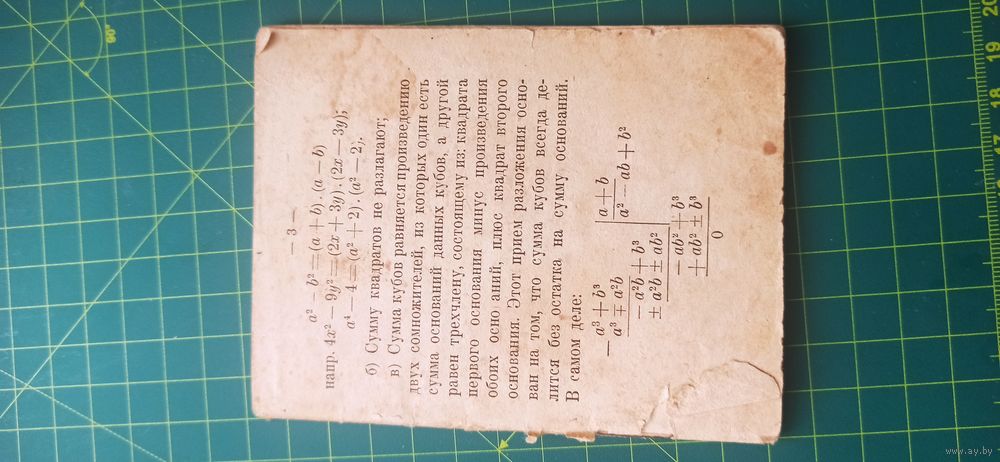 — 3 —
a² — b² = (a + b) . (a — b)
напр. 4x² — 9y² = (2x + 3y) . (2x — 3y);
a⁴ — 4 = (a² + 2) . (a² — 2);
б) Сумму квадратов не разлагают;
в) Сумма кубов равняется произведению
двух сомножителей, из которых один есть
сумма оснований данных кубов, а другой
равен трехчлену, состоящему из: квадрата
первого основания минус произведения
обоих осно аний, плюс квадрат второго
основания. Этот прием разложения осно-
ван на том, что сумма кубов всегда де-
лится без остатка на сумму оснований.
В самом деле:
— a³ + b³ | a + b
a³ ∓ a²b | a² — ab + b²
— a²b + b³
± a²b ± ab²
— ab² + b³
+ ab² ± b³
0
90°
18
19
20
www.ay.by